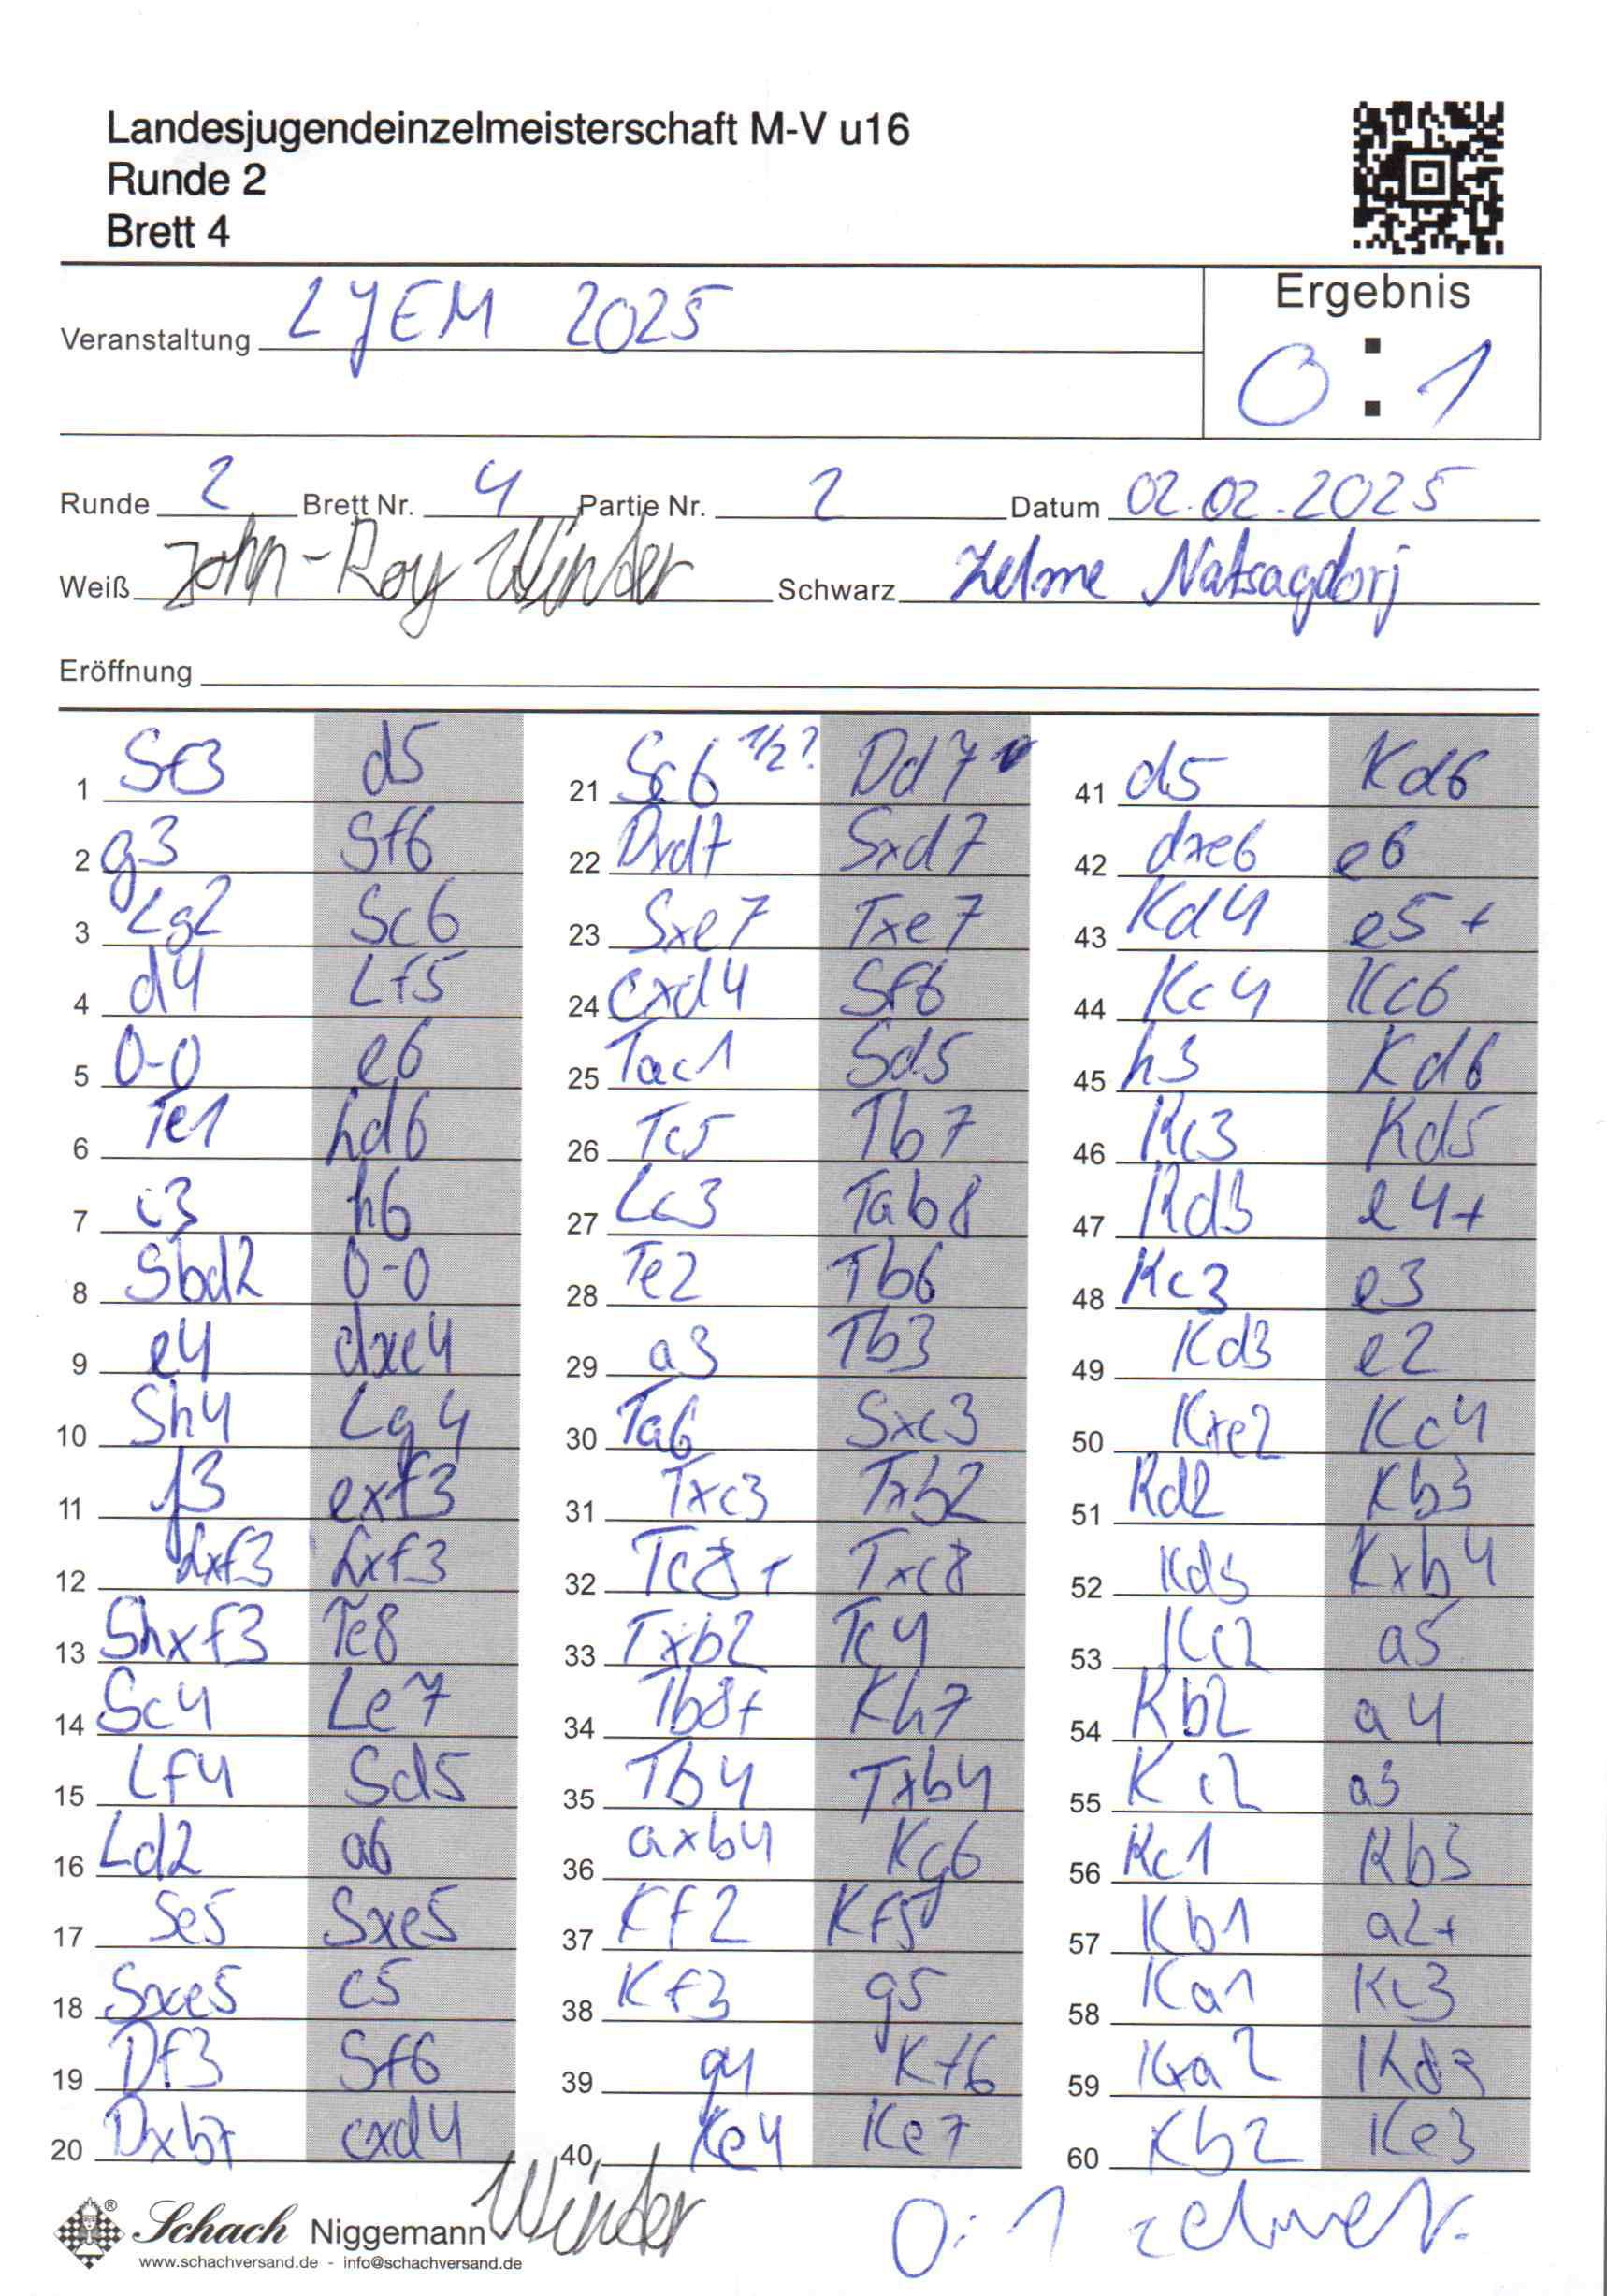 Landesjugendeinzelmeisterschaft M-V u16
Runde 2
Brett 4
Ergebnis
Veranstaltung LJEM 2025
0:1
Runde 2 Brett Nr. 4 Partie Nr. 2 Datum 02.02.2025
Weiß John-Roy Winter Schwarz Zelme Natsagdorj
Eröffnung
1 Sf3 d5
2 g3 Sf6
3 Lg2 Sc6
4 d4 Lf5
5 0-0 e6
6 Te1 Ld6
7 c3 h6
8 Sbd2 0-0
9 e4 dxe4
10 Sh4 Lg4
11 f3 exf3
12 Lxf3 Lxf3
13 Shxf3 Te8
14 Sc4 Le7
15 Lf4 Sd5
16 Ld2 a6
17 Se5 Sxe5
18 Sxe5 c5
19 Df3 Sf6
20 Dxb7 cxd4
21 Sc6 1/2? Dd7
22 Dxd7 Sxd7
23 Sxe7 Txe7
24 cxd4 Sf6
25 Tac1 Sd5
26 Tc5 Tb7
27 Lc3 Tab8
28 Te2 Tb6
29 a3 Tb3
30 Ta6 Sxc3
31 Txc3 Txb2
32 Tc8+ Txc8
33 Txb2 Tc4
34 Tb8+ Kh7
35 Tb4 Txb4
36 axb4 Kg6
37 Kf2 Kf5
38 Kf3 g5
39 g4 Kf6
40 Ke4 Ke7
41 d5 Kd6
42 dxe6 e6
43 Kd4 e5+
44 Kc4 Kc6
45 h3 Kd6
46 Kc3 Kd5
47 Kd3 e4+
48 Kc3 e3
49 Kd3 e2
50 Kxe2 Kc4
51 Kd2 Kb3
52 Kd3 Kxb4
53 Kc2 a5
54 Kb2 a4
55 Kc2 a3
56 Kc1 Kb3
57 Kb1 a2+
58 Ka1 Kc3
59 Kxa2 Kd3
60 Kb2 Ke3
Schach Niggemann
®
www.schachversand.de - info@schachversand.de
Winter
0:1